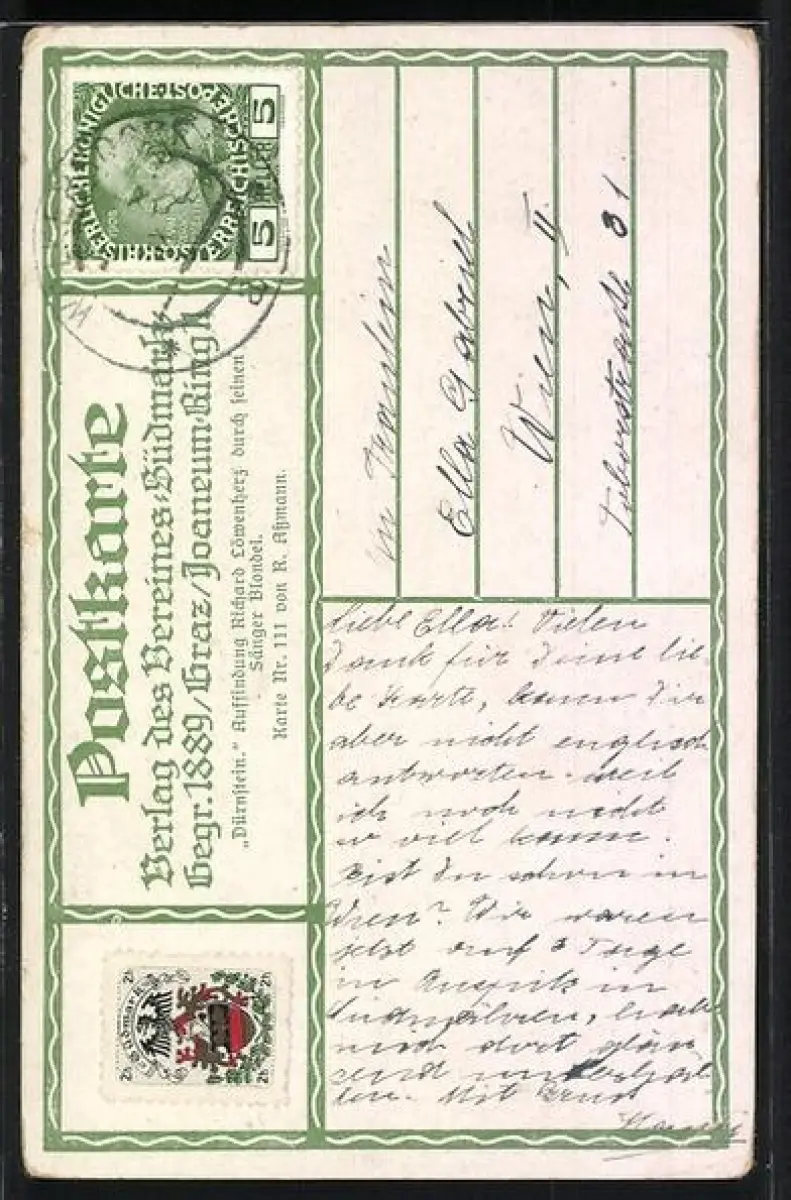 KAISERLICHE KÖNIGLICHE ÖSTERREICHISCHE POST
5 HELLER 5
Postkarte
Verlag des Vereines „Südmark“
Gegr. 1889/Graz/Joaneum-Ring
„Dürnstein.“ Auffindung Richard Löwenherz durch seinen
Sänger Blondel.
Karte Nr. 111 von R. Aßmann.
2h
2h
2h
2h
Südmark
Fräulein
Ella
Wien, II
Taborstraße 31
Liebe Ella! Vielen
Dank für Deine lie-
be Karte, kann Dir
aber nicht englisch
antworten weil
ich noch nicht
so viel kann.
Bist Du schon in
Wien? Wir waren
jetzt auf 3 Tage
in Auspitz in
Südmähren, hab
mich dort glän
zend unterhal
ten. Mit Gruß